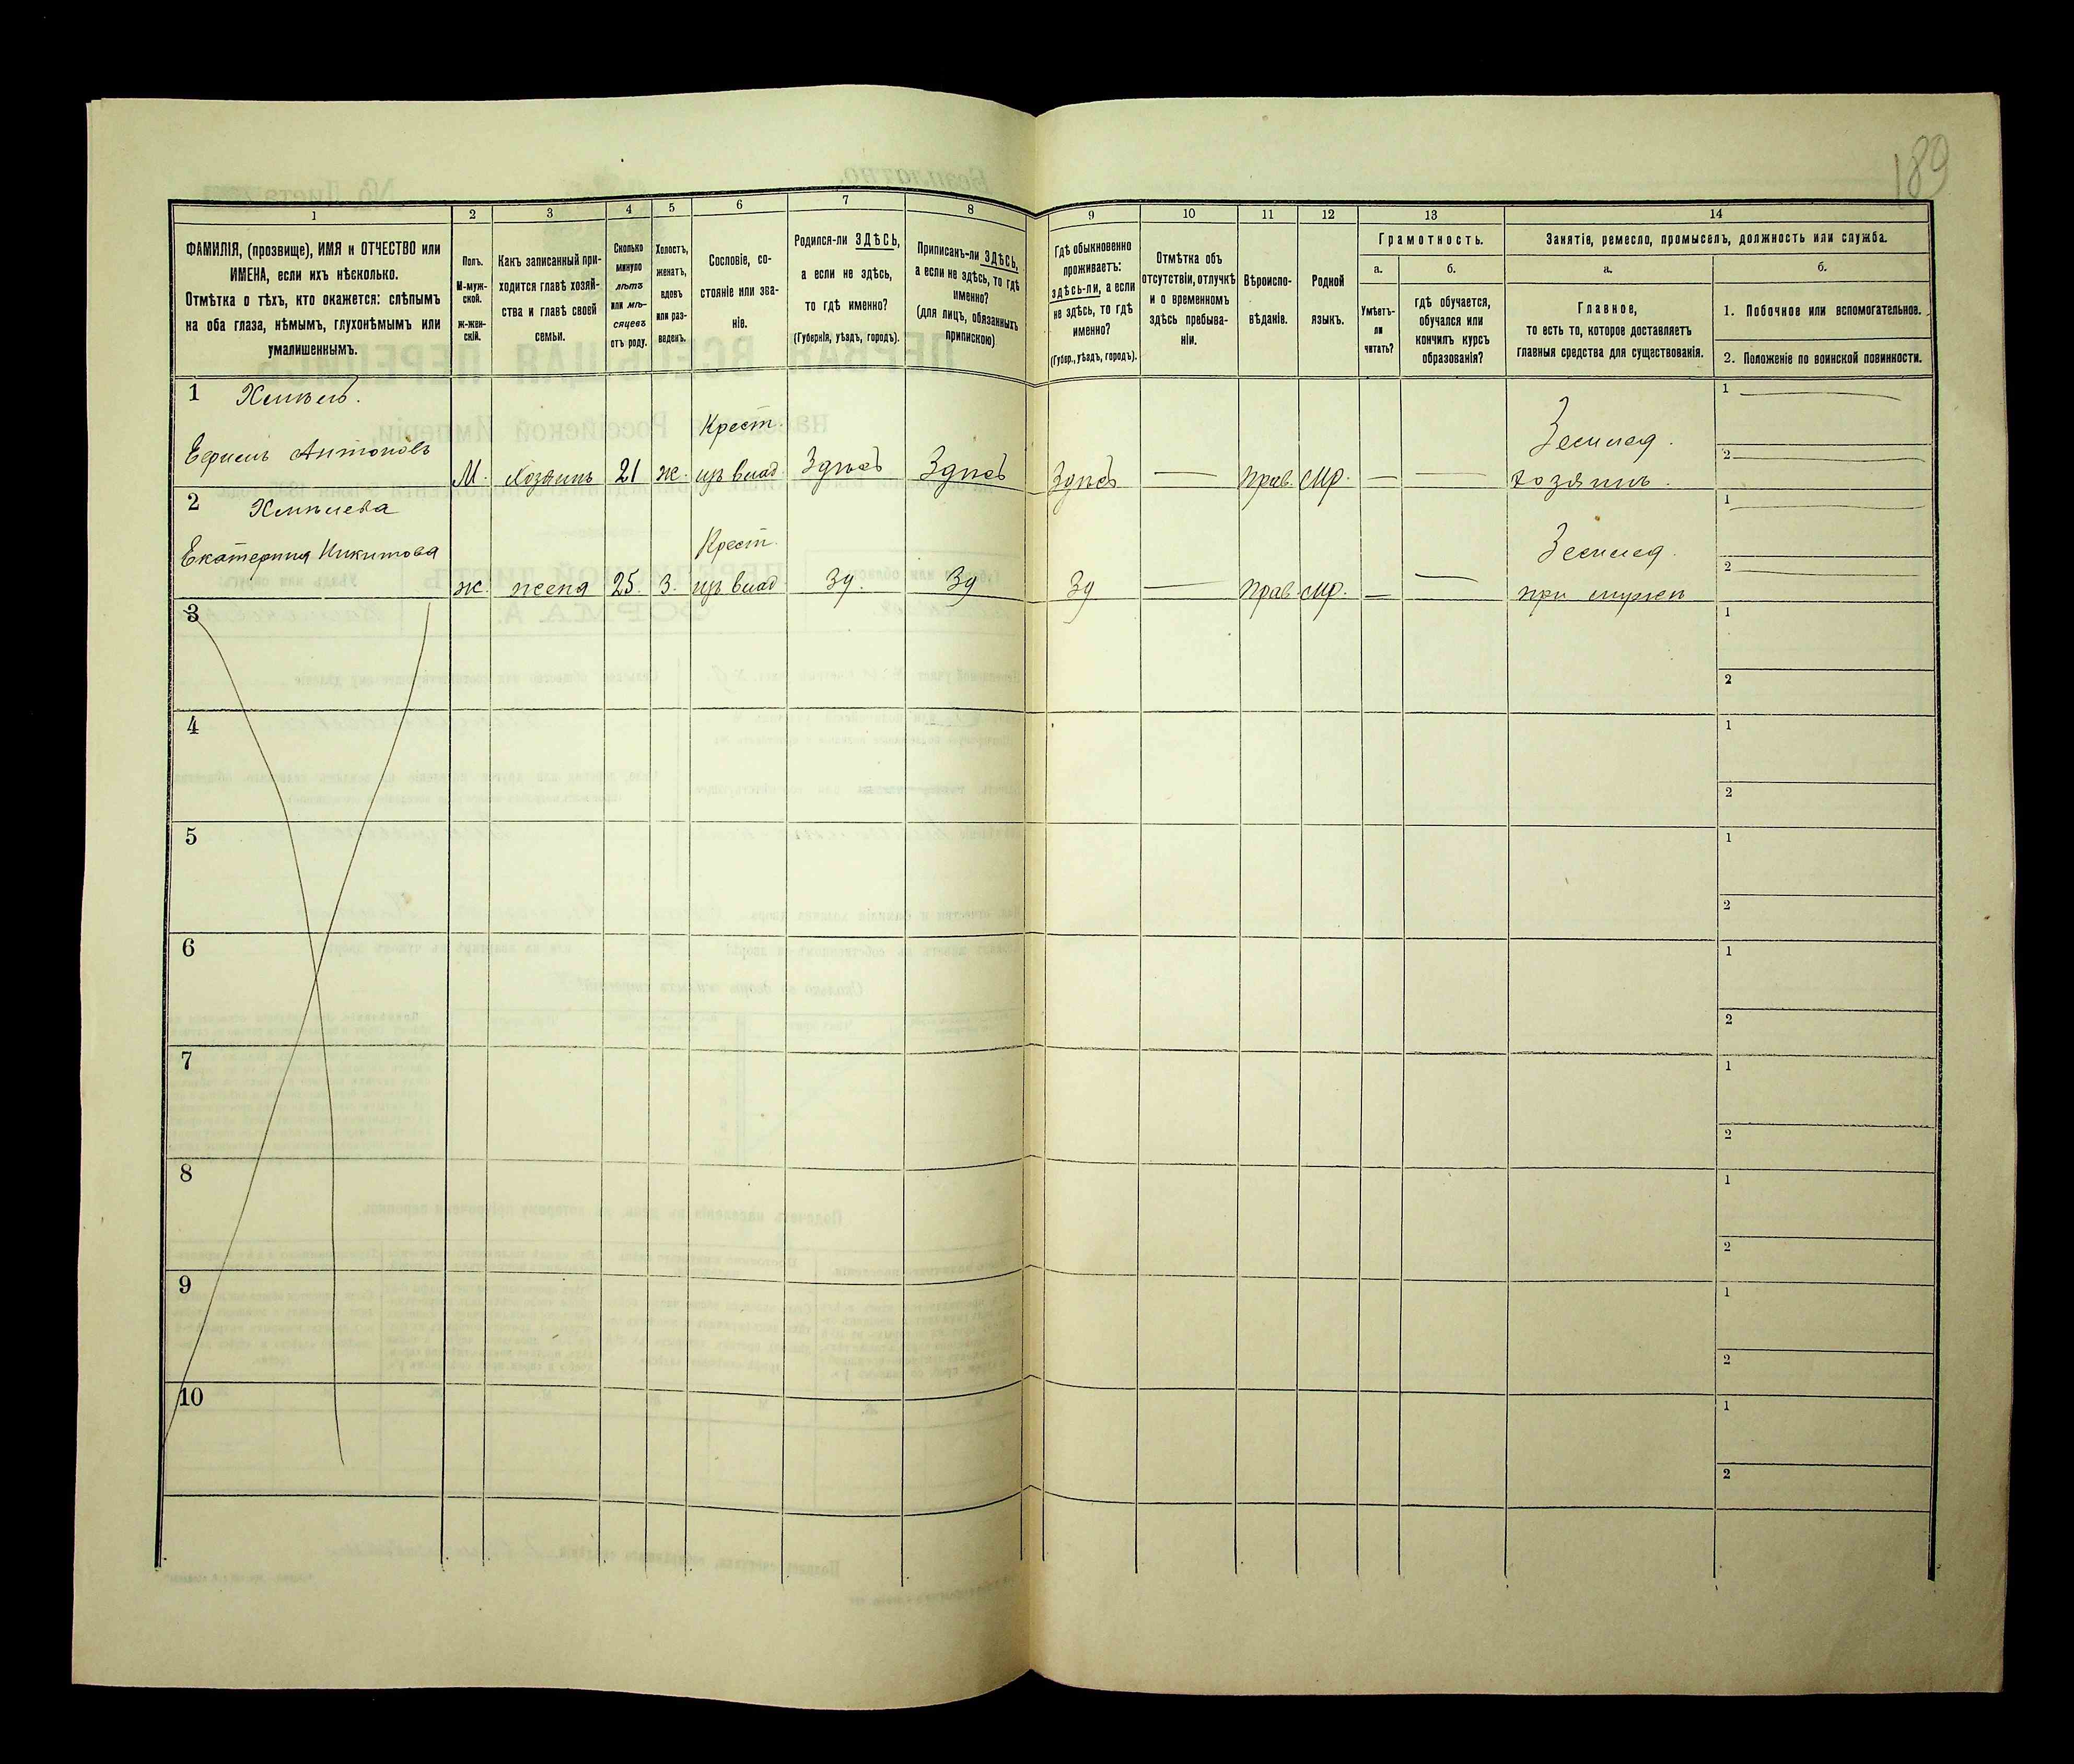 189
1 2 3 4 5 6 7 8 9 10 11 12 13 14
ФАМИЛІЯ, (прозвище), ИМЯ и ОТЧЕСТВО или
ИМЕНА, если ихъ нѣсколько.
Отмѣтка о тѣхъ, кто окажется: слѣпымъ
на оба глаза, нѣмымъ, глухонѣмымъ или
умалишеннымъ.
Полъ.
М-муж-
ской.
ж-жен-
скій.
Какъ записанный при-
ходится главѣ хозяй-
ства и главѣ своей
семьи.
Сколько
минуло
лѣтъ
или мѣ-
сяцевъ
отъ роду.
Холостъ,
женатъ,
вдовъ
или раз-
веденъ.
Сословіе, со-
стояніе или зва-
ніе.
Родился-ли ЗДѢСЬ,
а если не здѣсь,
то гдѣ именно?
(Губернія, уѣздъ, городъ).
Приписанъ-ли ЗДѢСЬ,
а если не здѣсь, то гдѣ
именно?
(для лицъ, обязанныхъ
припискою)
Гдѣ обыкновенно
проживаетъ:
здѣсь-ли, а если
не здѣсь, то гдѣ
именно?
(Губер., уѣздъ, городъ).
Отмѣтка объ
отсутствіи, отлучкѣ
и о временномъ
здѣсь пребыва-
ніи.
Вѣроиспо-
вѣданіе.
Родной
языкъ.
Грамотность.
а. б.
Умѣетъ-
ли
читать?
гдѣ обучается,
обучался или
кончилъ курсъ
образованія?
Занятіе, ремесло, промыселъ, должность или служба.
а. б.
Главное,
то есть то, которое доставляетъ
главныя средства для существованія.
1. Побочное или вспомогательное.
2. Положеніе по воинской повинности.
1 Хмѣлевъ. 1
Крест. Землед.
Антоновъ 2
М. хозяинъ 21 ж. изъ влад. Здѣсь Здѣсь Здѣсь — Прав. мр. — — хозяинъ.
2 Хмѣлева 1
Крест. Землед.
Екатерина Никитова 2
ж. жена 25. З. изъ влад. Зд. Зд Зд — Прав. мр. — — при мужѣ
3 1
2
4 1
2
5 1
2
6 1
2
7 1
2
8 1
2
9 1
2
10 1
2